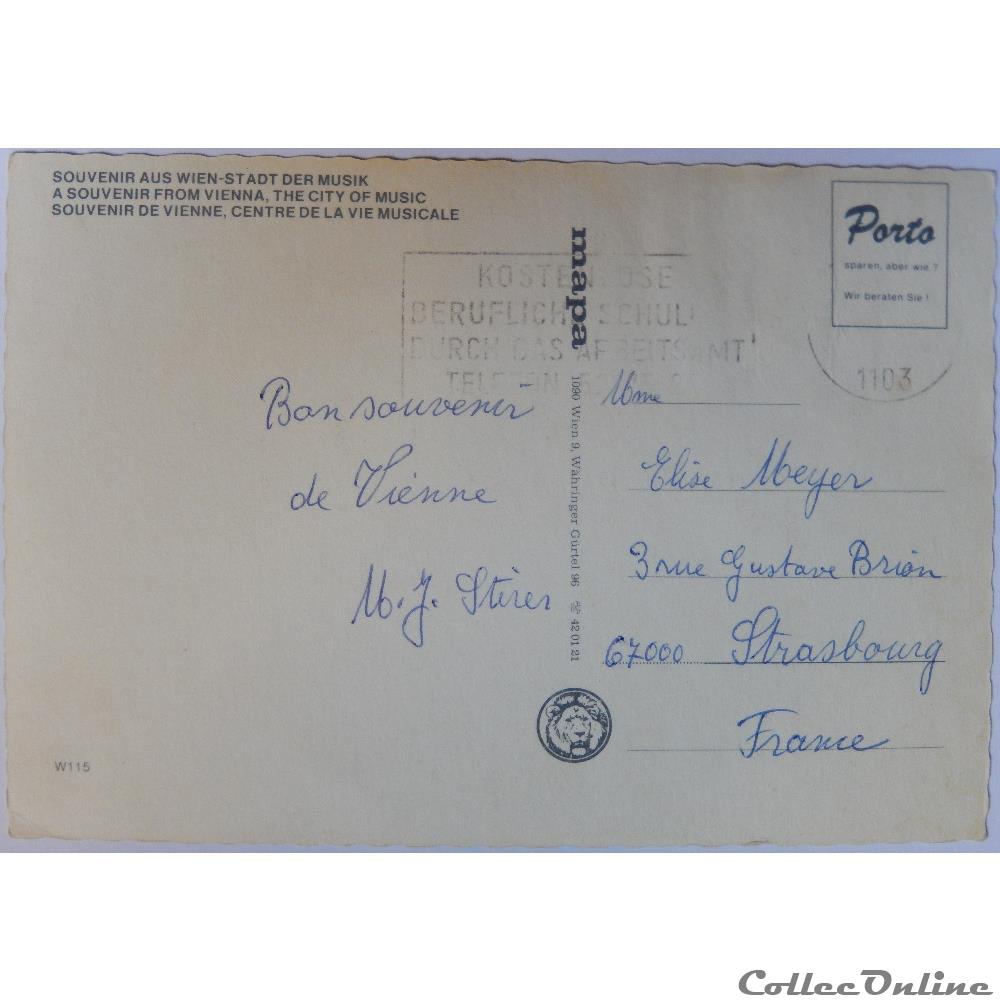 SOUVENIR AUS WIEN-STADT DER MUSIK
A SOUVENIR FROM VIENNA, THE CITY OF MUSIC
SOUVENIR DE VIENNE, CENTRE DE LA VIE MUSICALE
mapa
1090 Wien 9, Währinger Gürtel 96 ☏ 42 01 21
Porto
sparen, aber wie?
Wir beraten Sie!
KOSTENLOSE
BERUFLICHE SCHUL
DURCH DAS ARBEITSAMT
TELEFON
1103
Bon souvenir
de Vienne
M. J.
Mme
Elise Meyer
3 rue Gustave Brion
67000 Strasbourg
France
W115
CollecOnline